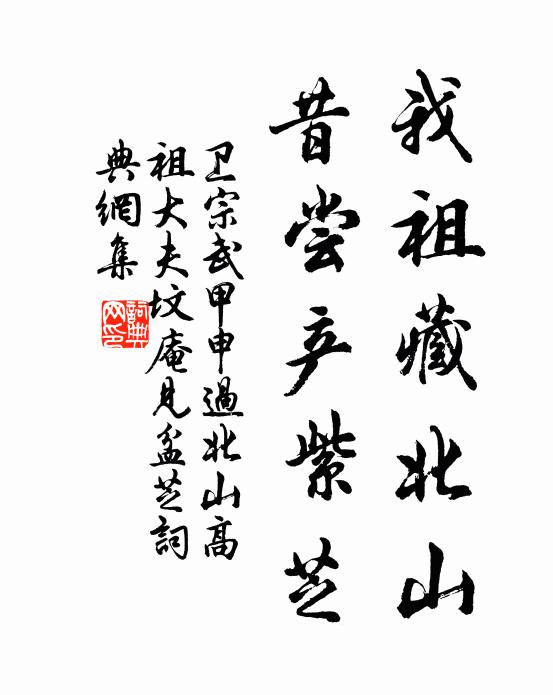 我祖藏北山
昔尝产紫芝
卫宗武甲申過北山高
祖大夫坟庵見盆芝詞
典網集
詞典
网印